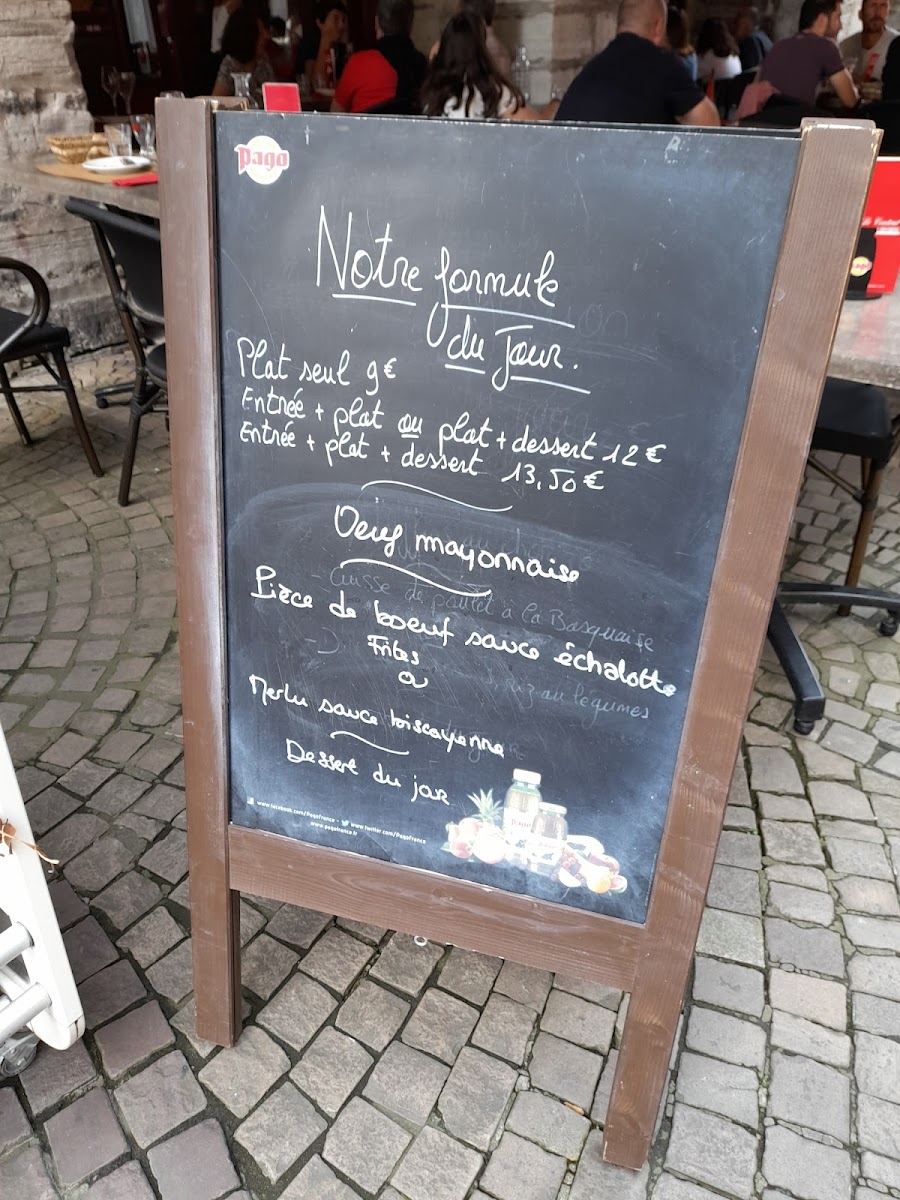 Pago
Notre formule
du Jour.
Plat seul 9€
Entrée + plat ou plat + dessert 12€
Entrée + plat + dessert 13,50€
Oeuf mayonnaise
Cuisse de poulet à la Basquaise
Pièce de boeuf sauce échalotte
Frites
riz au légumes
Merlu sauce biscayenne
Dessert du jour
www.facebook.com/PagoFrance - www.twitter.com/PagoFrance
www.pagofrance.fr